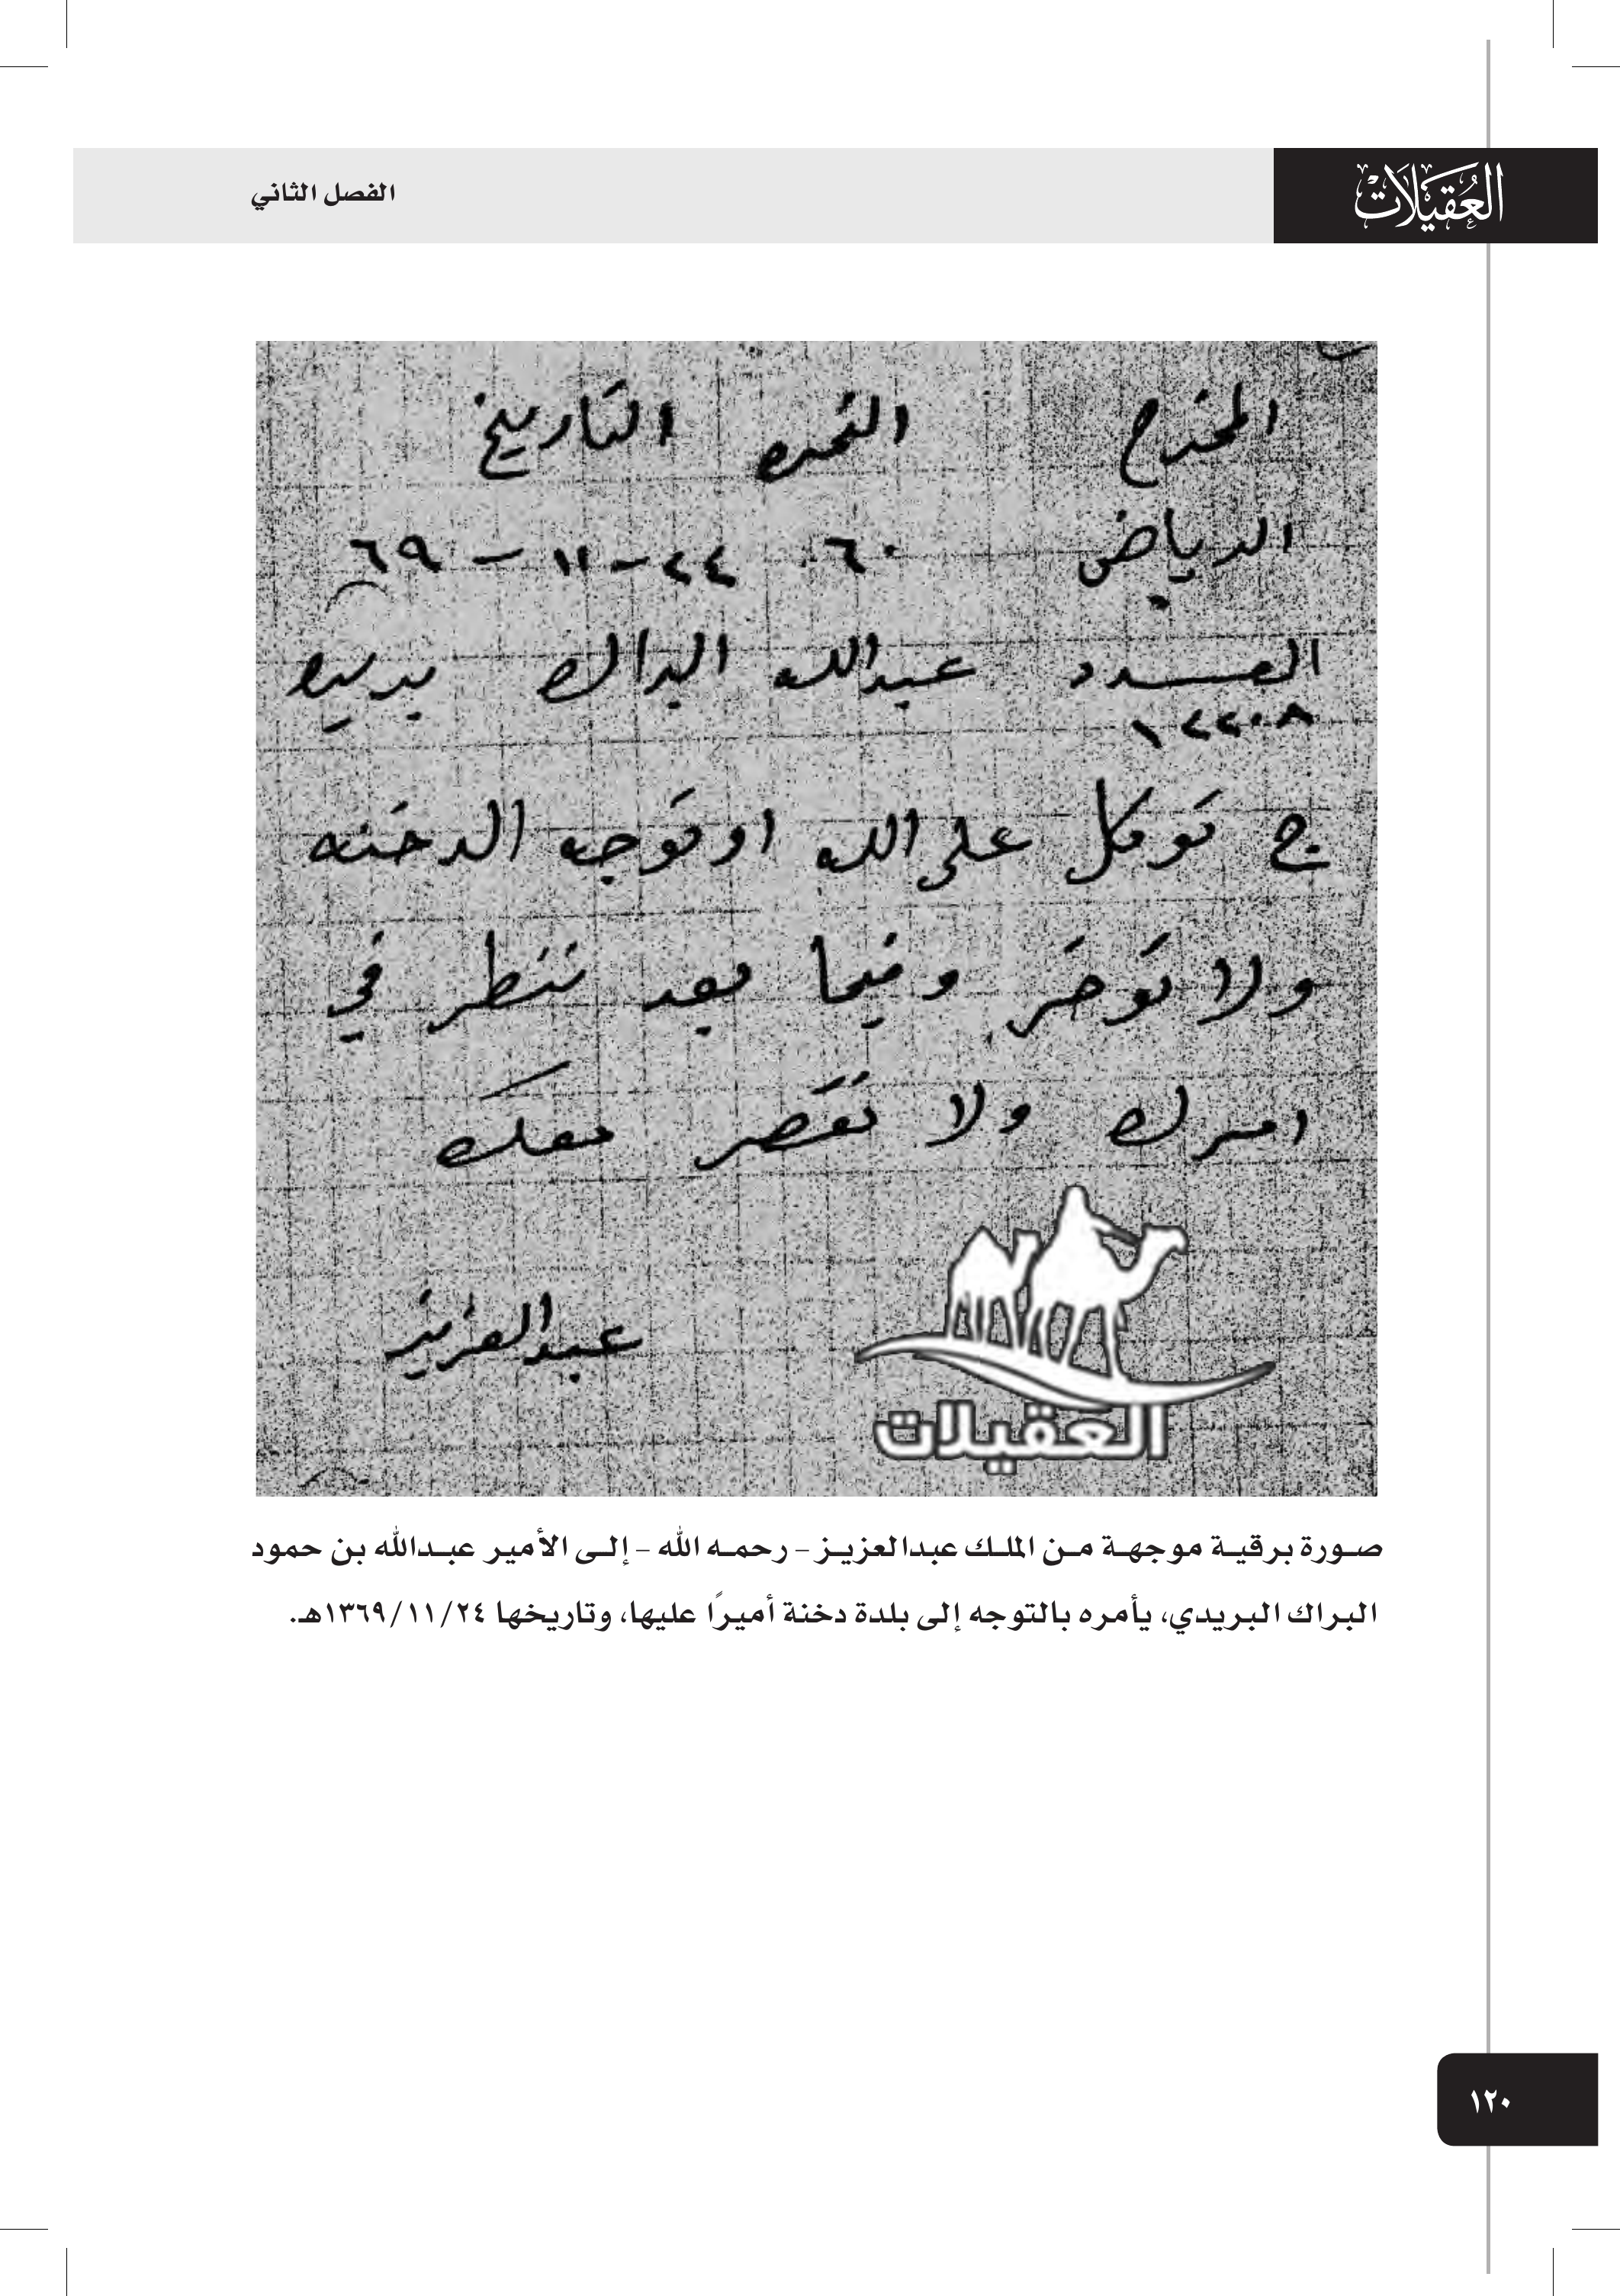 العُقَيْلَاتْ
الفصل الثاني
المخرج النمره التاريخ
الرياض ٦٠ ٢٤-١١-٦٩
العدد عبدالله البراك بريده
١٢٢٠٨
ج توكل على الله او توجه الدخنه
ولا توخر وفيما بعد ننظر في
امرك ولا نقصر معك
عبدالعزيز
العقيلات
صورة برقية موجهة من الملك عبدالعزيز – رحمه الله – إلى الأمير عبدالله بن حمود
البراك البريدي، يأمره بالتوجه إلى بلدة دخنة أميرًا عليها، وتاريخها ١٣٦٩/١١/٢٤هـ.
١٢٠